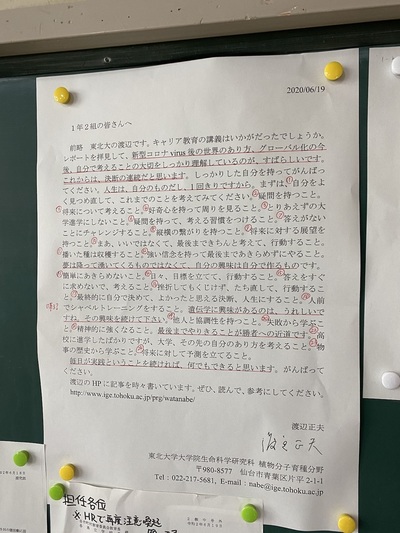 2020/06/19
1年2組の皆さんへ
前略 東北大の渡辺です。キャリア教育の講義はいかがだったでしょうか。
レポートを拝見して、新型コロナvirus後の世界のあり方、グローバル化の今
後、自分で考えることの大切をしっかり理解しているのが、すばらしいです。
これからは、決断の連続だと思います。しっかりした自分を持ってがんばっ
てください。人生は、自分のものだし、1回きりですから。まずは、自分をよ
く見つめ直して、これまでのことを考えてみてください。疑問を持つこと。
将来について考えること。好奇心を持って周りを見ること。とりあえずの大
学進学にしないこと。疑問を持って、考える習慣をつけること。答えがない
ことにチャレンジすること。縦横の繋がりを持つこと。将来に対する展望を
持つこと。まあ、いいではなくて、最後まできちんと考えて、行動すること。
播いた種は収穫すること。強い信念を持って最後まであきらめずにやること。
夢は降って湧いてくるものではなくて、自分の興味は自分で作るものです。
簡単にあきらめないこと。日々、目標を立てて、行動すること。答えをすぐ
に求めないで、考えること。挫折してもくじけず、たち直して、行動するこ
と。最終的に自分で決めて、よかったと思える決断、人生にすること。人前
でシャベルトレーニングをすること。遺伝学に興味があるのは、うれしいで
すね。その興味を続けて下さい。他人と協調性を持つこと。失敗から学ぶこ
と。精神的に強くなること。最後までやりきることが勝者への近道です。高
校に進学したばかりですが、大学、その先の自分のあり方を考えること。物
事の歴史から学ぶこと。将来に対して予測を立てること。
毎日が実践ということを続ければ、何でもできると思います。がんばってく
ださい。
渡辺のHPに記事を時々書いています。ぜひ、読んで、参考にしてください。
http://www.ige.tohoku.ac.jp/prg/watanabe/
渡辺正夫
渡辺正夫
東北大学大学院生命科学研究科 植物分子育種分野
〒980-8577 仙台市青葉区片平2-1-1
Tel : 022-217-5681, E-mail : nabe@ige.tohoku.ac.jp
担任各位
※HRで再度注意喚起